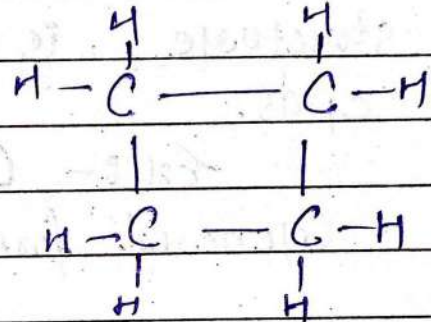 H H
H - C — C - H
| |
H - C — C - H
| |
H H